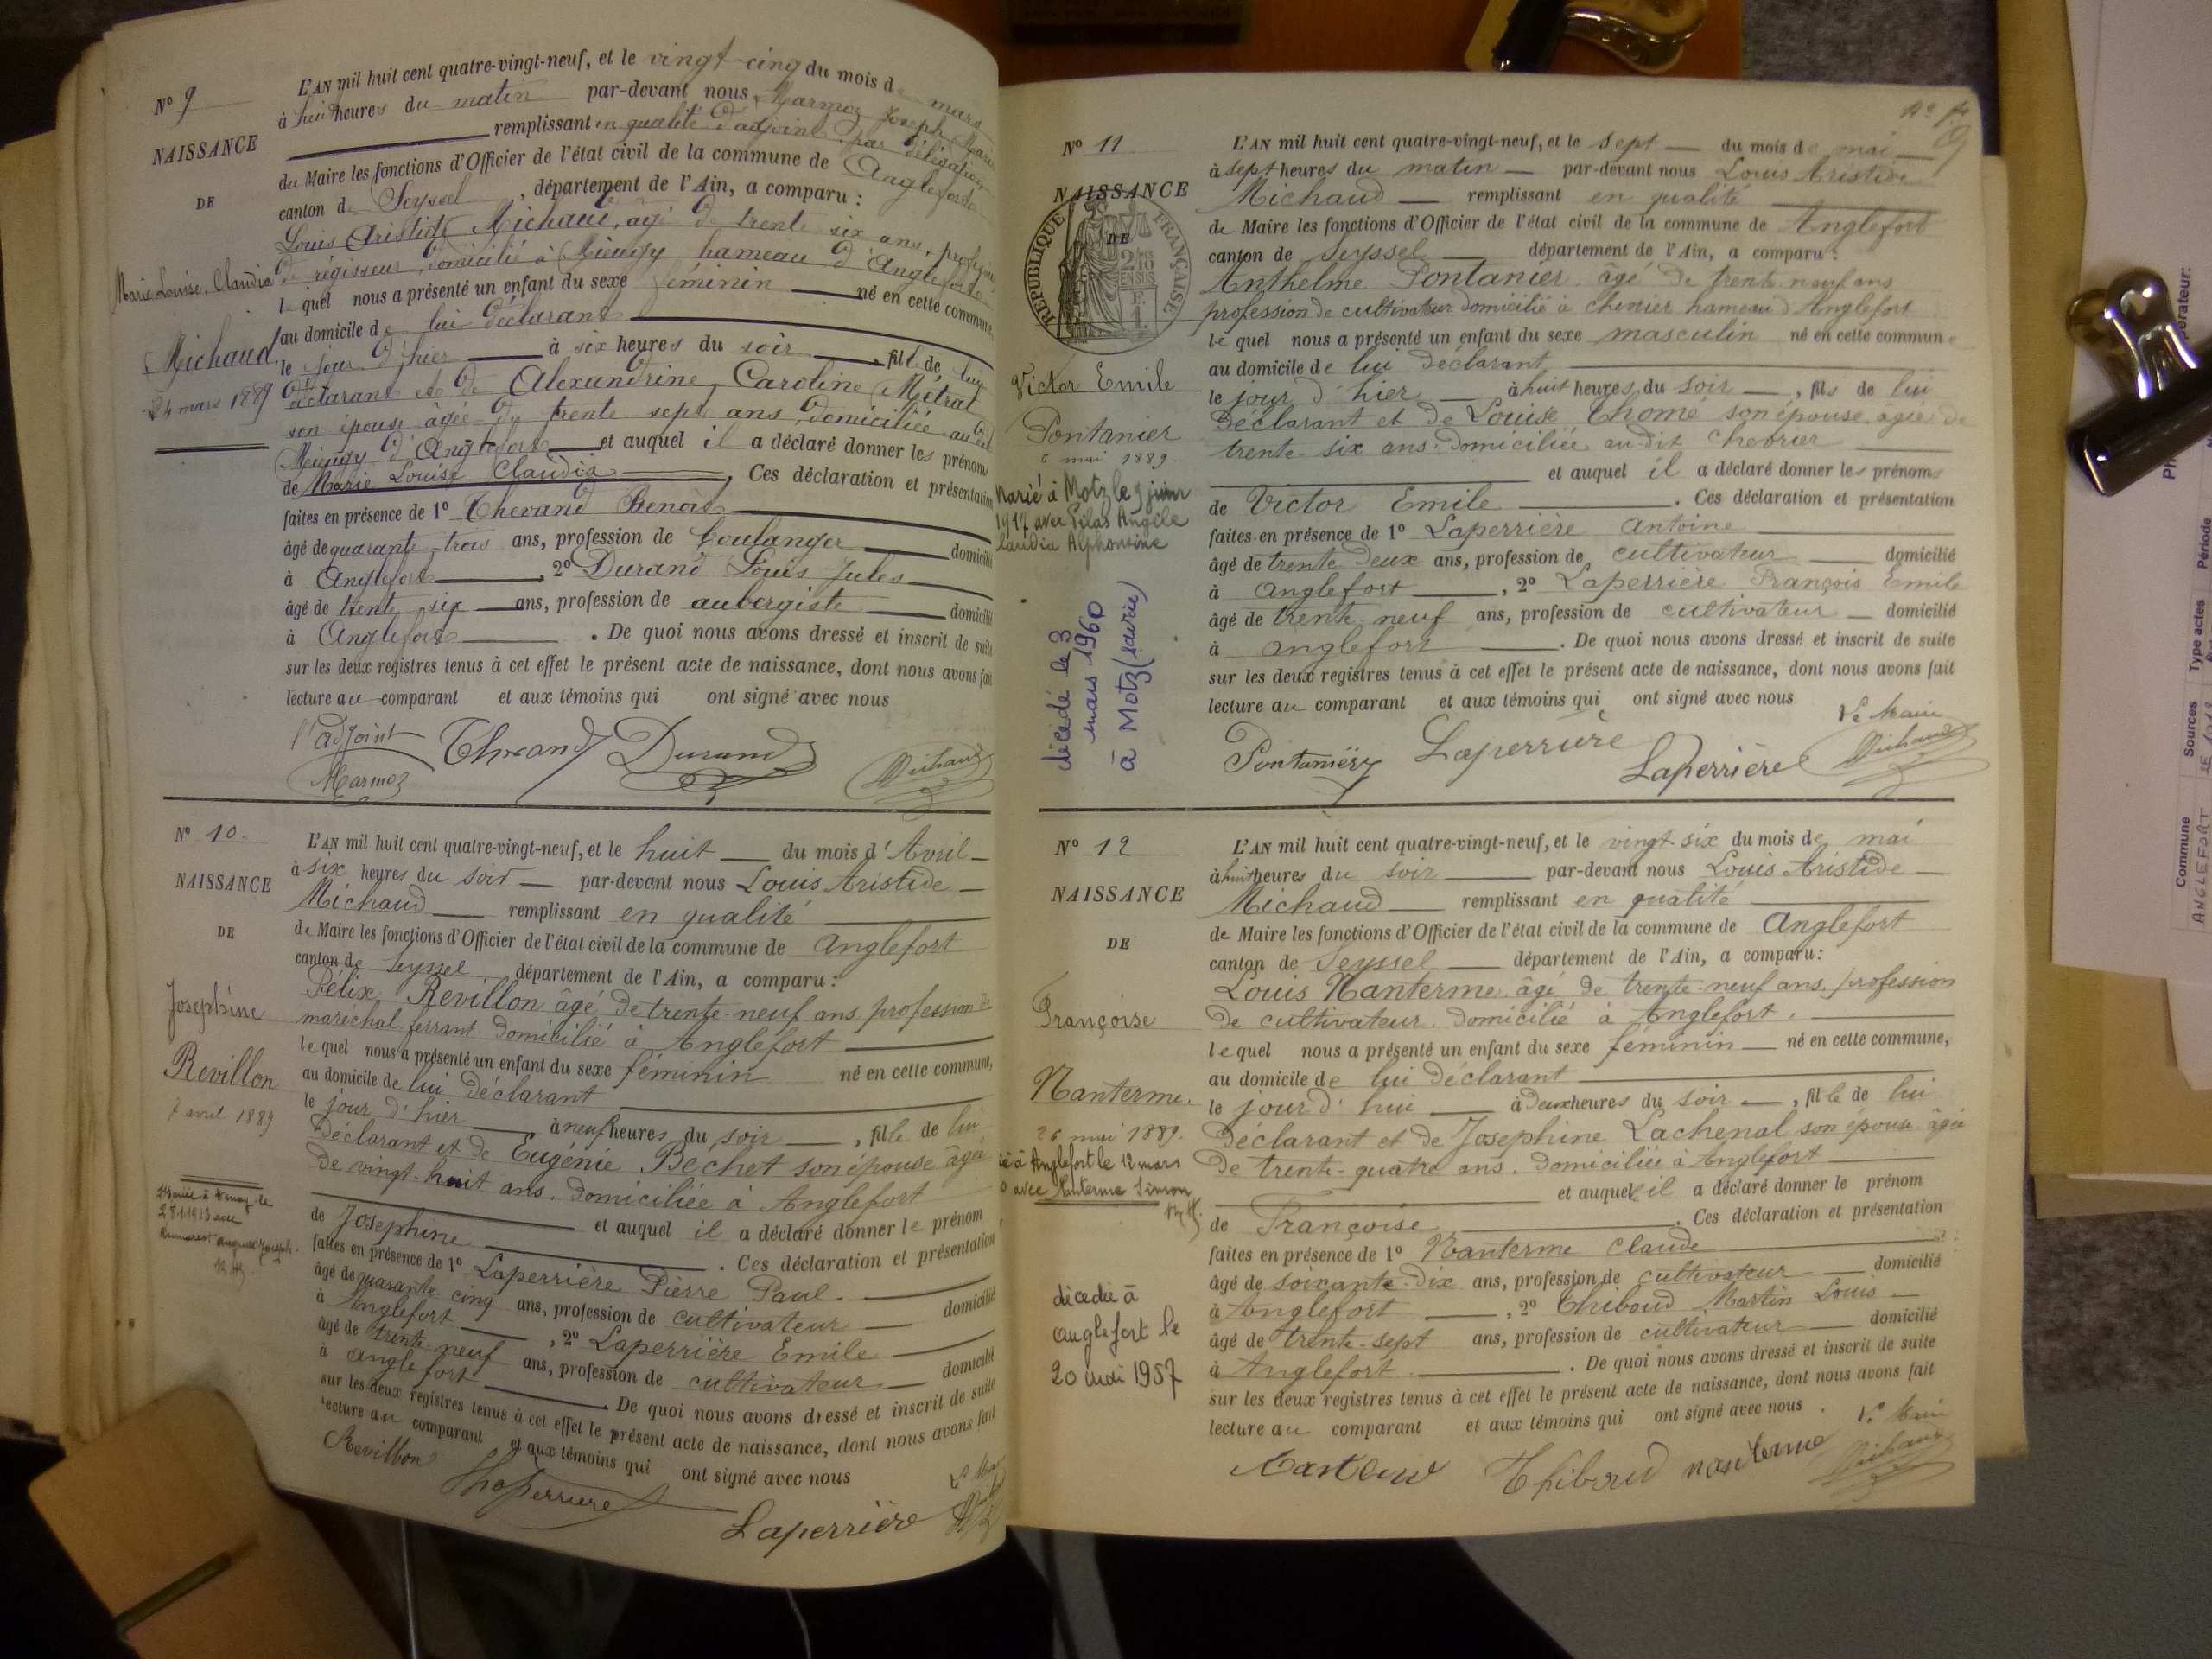 N° 9
NAISSANCE
DE
Marie Louise, Claudia
Michaud
24 mars 1889
L'AN mil huit cent quatre-vingt-neuf, et le vingt-cinq du mois de mars
à huit heures du matin par-devant nous Marmoz Joseph Marie
remplissant en qualité d'adjoint par délégation
du Maire les fonctions d'Officier de l'état civil de la commune de Anglefort
canton de Seyssel, département de l'Ain, a comparu :
Louis Aristide Michaud, âgé de trente six ans, profession
de régisseur domicilié à Mieugy hameau d'Anglefort
lequel nous a présenté un enfant du sexe féminin né en cette commune,
au domicile de lui déclarant
le jour d'hier à six heures du soir, fille de lui
déclarant et de Alexandrine, Caroline Métral
son épouse âgée de trente sept ans, domiciliée au dit
Mieugy d'Anglefort et auquel il a déclaré donner les prénom
de Marie Louise Claudia, Ces déclaration et présentation
faites en présence de 1° Thevand Benoit
âgé de quarante trois ans, profession de boulanger domicilié
à Anglefort, 2° Durand Louis Jules
âgé de trente six ans, profession de aubergiste domicilié
à Anglefort. De quoi nous avons dressé et inscrit de suite
sur les deux registres tenus à cet effet le présent acte de naissance, dont nous avons fait
lecture au comparant et aux témoins qui ont signé avec nous
l'adjoint
Marmoz Durand Michaud
N° 10
NAISSANCE
DE
Josephine
Revillon
7 avril 1889
L'AN mil huit cent quatre-vingt-neuf, et le huit du mois d'Avril
à six heures du soir par-devant nous Louis Aristide
Michaud remplissant en qualité
de Maire les fonctions d'Officier de l'état civil de la commune de Anglefort
canton de Seyssel département de l'Ain, a comparu :
Félix Revillon âgé de trente-neuf ans profession de
maréchal ferrant domicilié à Anglefort
lequel nous a présenté un enfant du sexe féminin né en cette commune,
au domicile de lui déclarant
le jour d'hier à neuf heures du soir, fille de lui
déclarant et de Eugénie Béchet son épouse âgée
de vingt-huit ans. domiciliée à Anglefort
et auquel il a déclaré donner le prénom
de Josephine. Ces déclaration et présentation
faites en présence de 1° Laperrière Pierre Paul.
âgé de quarante cinq ans, profession de cultivateur domicilié
à Anglefort, 2° Laperrière Emile
âgé de trente neuf ans, profession de cultivateur domicilié
à anglefort. De quoi nous avons dressé et inscrit de suite
sur les deux registres tenus à cet effet le présent acte de naissance, dont nous avons fait
lecture au comparant et aux témoins qui ont signé avec nous
Revillon Laperrière
N° 11
NAISSANCE
DE
RÉPUBLIQUE FRANÇAISE
Victor Emile
Pontanier
6 mai 1889.
Marié à Motz le 9 juin
1917 avec Pilas Angèle
Claudia Alphonsine
décédé le 3
mars 1960
à Motz (Savoie)
L'AN mil huit cent quatre-vingt-neuf, et le sept du mois de mai
à sept heures du matin par-devant nous Louis Aristide
Michaud remplissant en qualité
de Maire les fonctions d'Officier de l'état civil de la commune de Anglefort
canton de Seyssel département de l'Ain, a comparu :
Anthelme Pontanier âgé de trente neuf ans
profession de cultivateur domicilié à chevrier hameau d'Anglefort
lequel nous a présenté un enfant du sexe masculin né en cette commune
au domicile de lui déclarant
le jour d'hier à huit heures du soir, fils de lui
déclarant et de Louise Thomé son épouse agée de
trente-six ans. domiciliée au dit chevrier
et auquel il a déclaré donner les prénoms
de Victor Emile. Ces déclaration et présentation
faites en présence de 1° Laperrière Antoine
âgé de trente deux ans, profession de cultivateur domicilié
à anglefort, 2° Laperrière François Emile
âgé de trente neuf ans, profession de cultivateur domicilié
à anglefort. De quoi nous avons dressé et inscrit de suite
sur les deux registres tenus à cet effet le présent acte de naissance, dont nous avons fait
lecture au comparant et aux témoins qui ont signé avec nous
Le Maire
Laperrière Laperrière Michaud
N° 12
NAISSANCE
DE
Françoise
Nanterme.
26 mai 1889.
à Anglefort le 12 mars
avec Nanterme Simon
décédée à
anglefort le
20 mai 1957
L'AN mil huit cent quatre-vingt-neuf, et le vingt-six du mois de mai
à huit heures du soir par-devant nous Louis Aristide
Michaud remplissant en qualité
de Maire les fonctions d'Officier de l'état civil de la commune de Anglefort
canton de Seyssel département de l'Ain, a comparu :
Louis Nanterme âgé de trente-neuf ans. profession
de cultivateur. domicilié à Anglefort.
lequel nous a présenté un enfant du sexe féminin né en cette commune,
au domicile de lui déclarant
le jour d'hui à deux heures du soir, fille de lui
déclarant et de Josephine Lachenal son épouse âgée
de trente-quatre ans. domiciliée à Anglefort
et auquel il a déclaré donner le prénom
de Françoise. Ces déclaration et présentation
faites en présence de 1° Nanterme Claude
âgé de soixante-dix ans, profession de cultivateur domicilié
à Anglefort, 2° Thiboud Martin Louis
âgé de trente-sept ans, profession de cultivateur domicilié
à Anglefort. De quoi nous avons dressé et inscrit de suite
sur les deux registres tenus à cet effet le présent acte de naissance, dont nous avons fait
lecture au comparant et aux témoins qui ont signé avec nous.
Le Maire
Thiboud nanterme Michaud
Commune Sources Type actes Période
ANGLEFORT